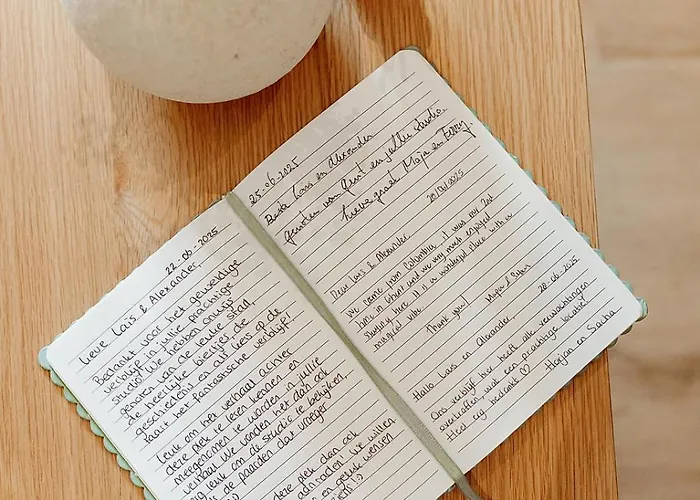 22-06-2025
Lieve Laïs & Alexander,
Bedankt voor het geweldige
verblijf in jullie prachtige
studio! We hebben onwijs
genoten van de leuke stad,
de heerlijke biertjes, de
geschiedenis en als kers op de
taart het fantastische verblijf!
Leuk om het verhaal achter
deze plek te leren kennen en
meegenomen te worden in jullie
verhaal. We vonden het dan ook
erg leuk om de studio te bekijken,
de paarden daar vroeger
deze plek dan ook
aanraden! We willen
en geluk wensen
25-06-2025
Beste Laïs en Alexander
genoten van Gent en jullie studio.
Lieve groet Maja en Ferry.
We come from Colombia, it was our 2nd
time in Ghent and we very much enjoyed
staying here. It is a wonderful place with a
vibe.
Dear Laïs & Alexander,
Thank you!
28-06-2025
Hallo Laïs en Alexander,
Ons verblijf hier heeft alle verwachtingen
overtroffen, wat een prachtige locatie!
Heel erg bedankt ♡ en Sacha